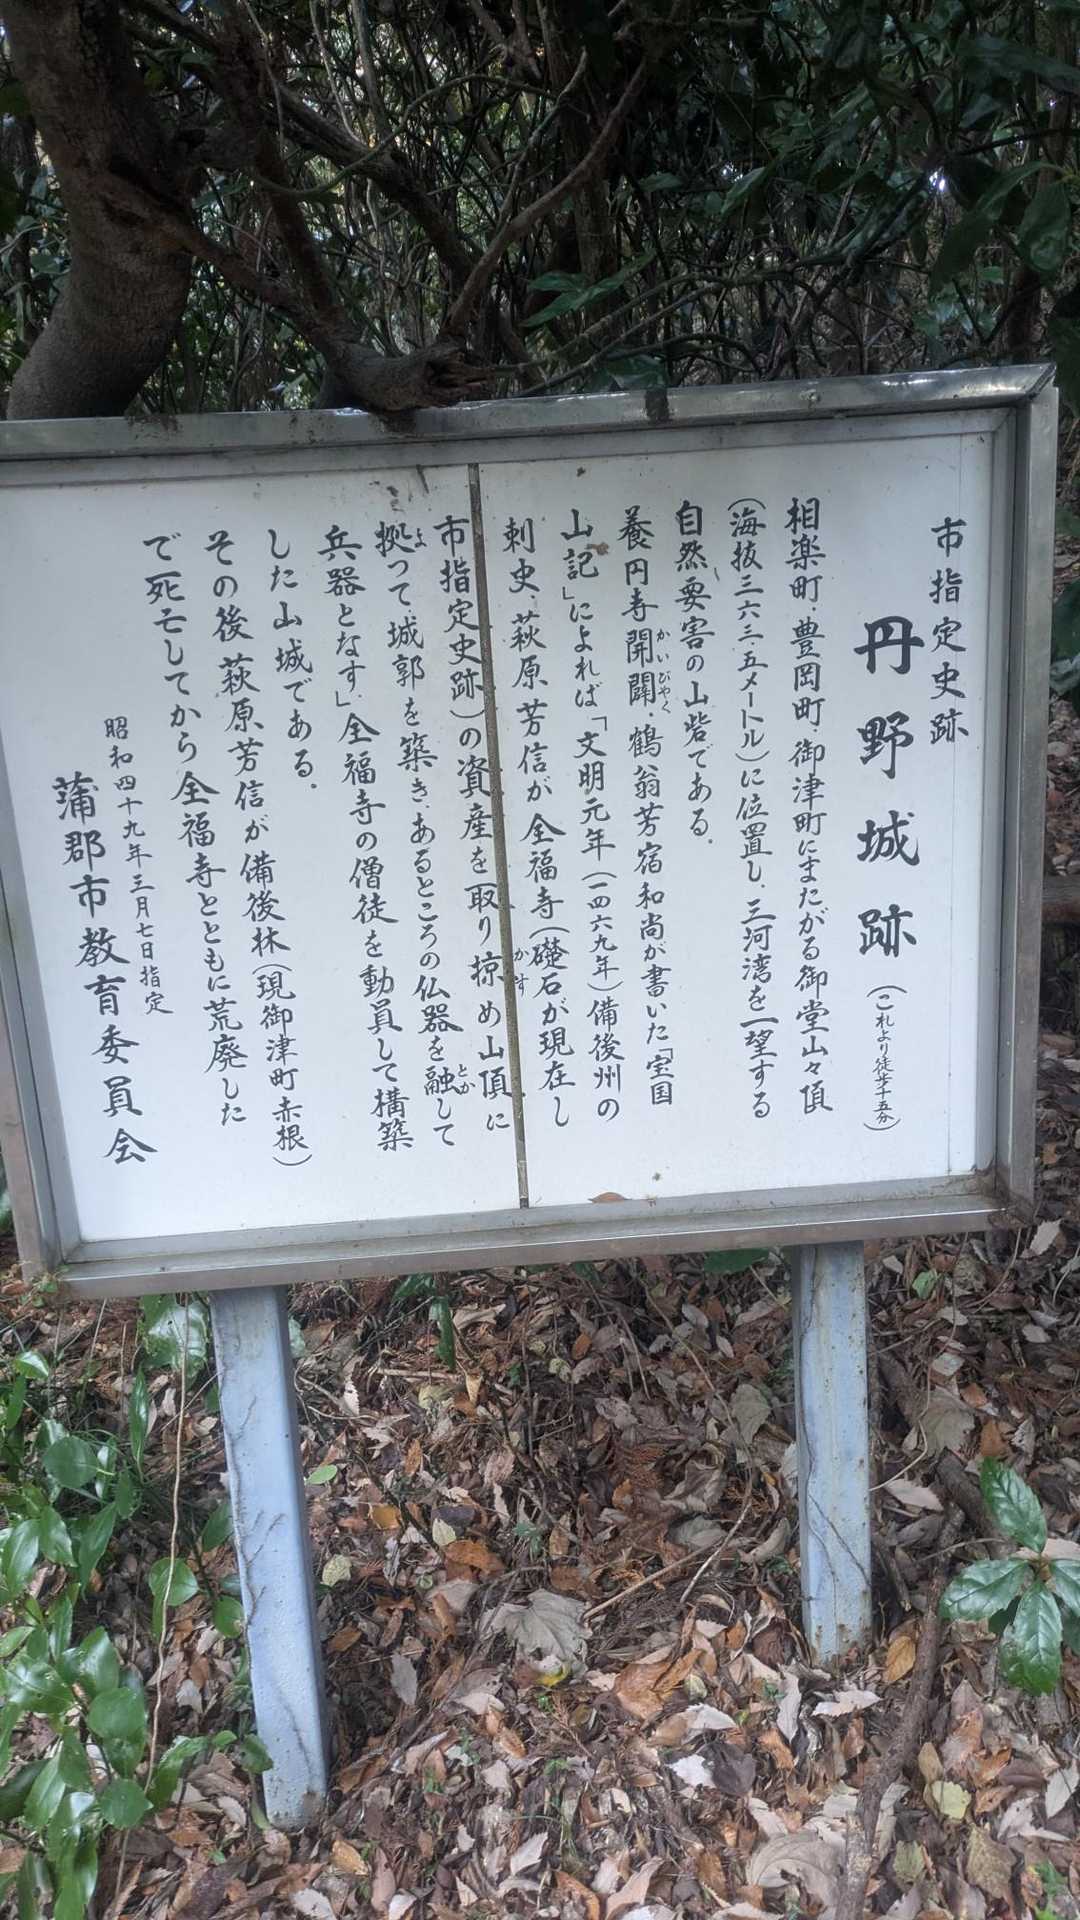 市指定史跡
丹野城跡(これより徒歩十五分)
相楽町・豊岡町・御津町にまたがる御堂山々頂
(海抜三六三・五メートル)に位置し、三河湾を一望する
自然要害の山砦である。
養円寺開闢・鶴翁芳宿和尚が書いた「宝国
かいびやく
山記」によれば「文明元年(一四六九年)備後州の
刺史・萩原芳信が全福寺(礎石が現在し
市指定史跡)の資産を取り掠め山頂に
かす
拠つて、城郭を築き、あるところの仏器を融して
よ
とか
兵器となす」全福寺の僧徒を動員して構築
した山城である。
その後萩原芳信が備後林(現御津町赤根)
で死亡してから全福寺とともに荒廃した
昭和四十九年三月七日指定
蒲郡市教育委員会